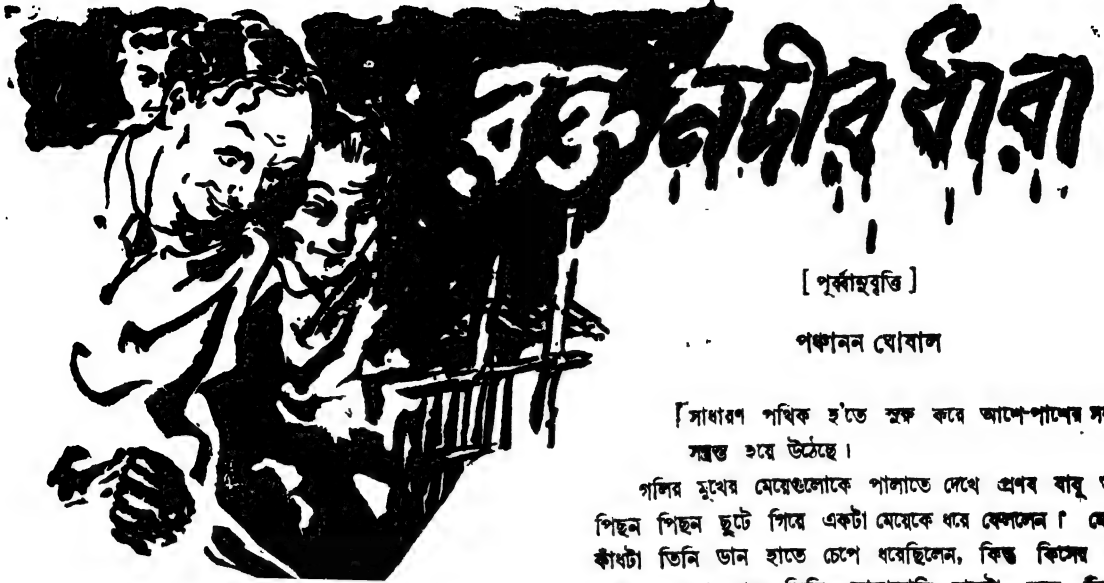 রক্তনদীর ধারা
[ পূর্ব্বানুবৃত্তি ]
পঞ্চানন ঘোষাল
সাধারণ পথিক হ'তে সুরু করে আশে-পাশের
সন্ত্রস্ত হয়ে উঠেছে।
গলির মুখের মেয়েগুলোকে পালাতে দেখে প্রণব বাবু
পিছন পিছন ছুটে গিয়ে একটা মেয়েকে ধরে ফেললেন।
কাঁধটা তিনি ডান হাতে চেপে ধরেছিলেন, কিন্তু কিসের